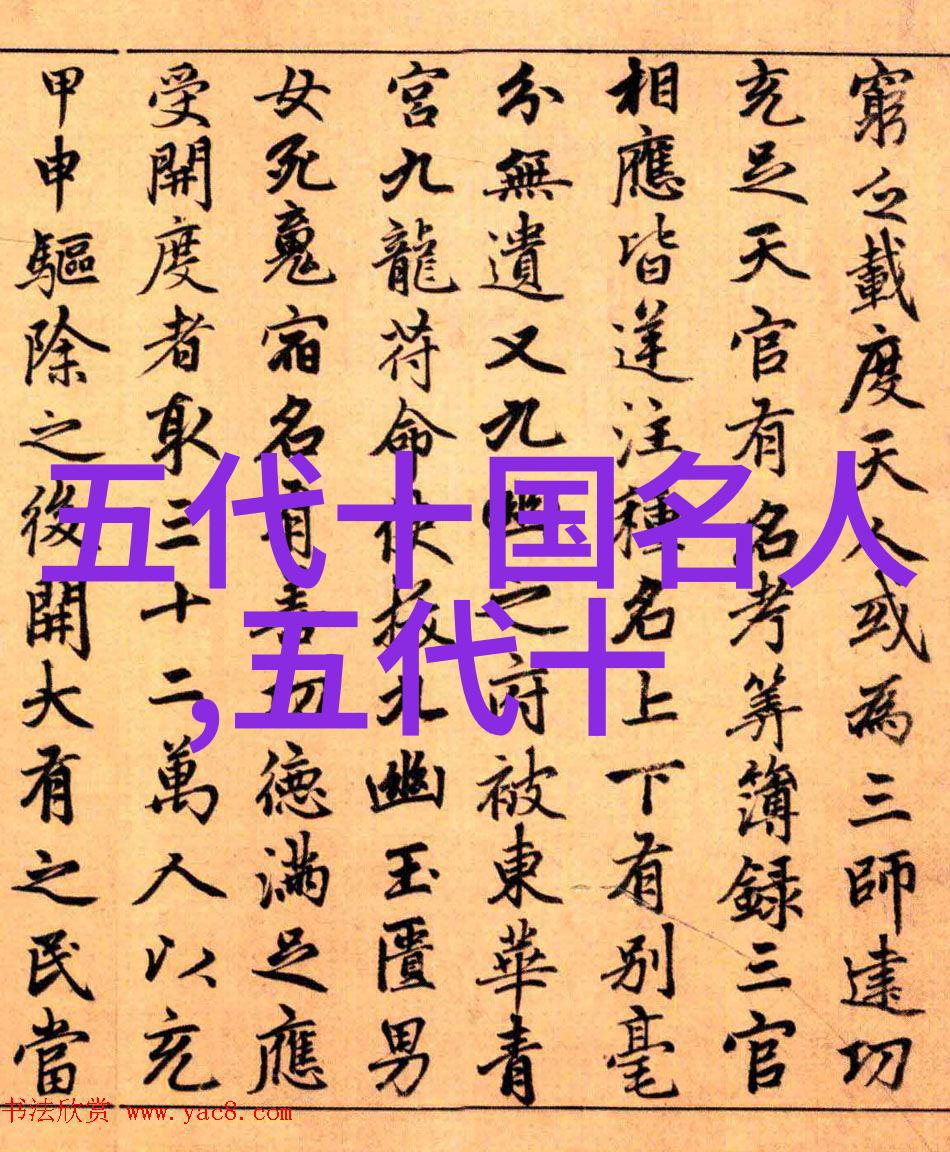 窮乏載度天人或為三師建功
充足天官有名考筭簿錄三官
相應皆逆注種名上下有別毫
分無遺又九幽之府被東華青
宮九龍符命使拔北幽玉匱男
女死魂宿名有善功德滿足應
受開度者取三十二萬人以充
甲申驅除之後開大有之民當
五代十国名人
,五代十
书法欣赏 www.yac8.com